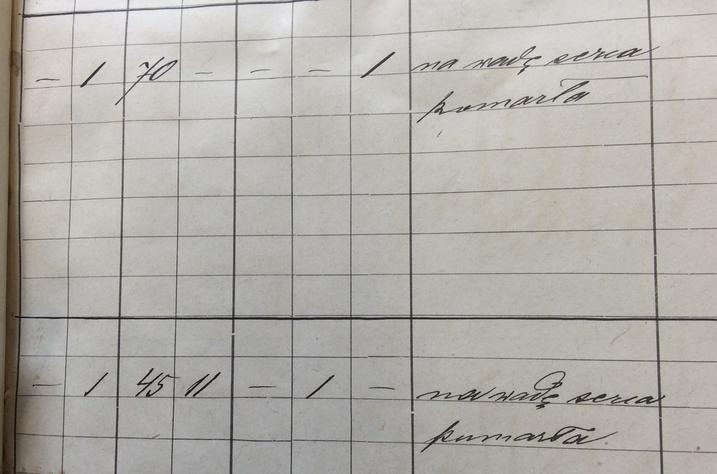 — 1 70 — — — 1 na wadę serca
pomarła
— 1 45 11 — 1 — na wadę serca
pumarła